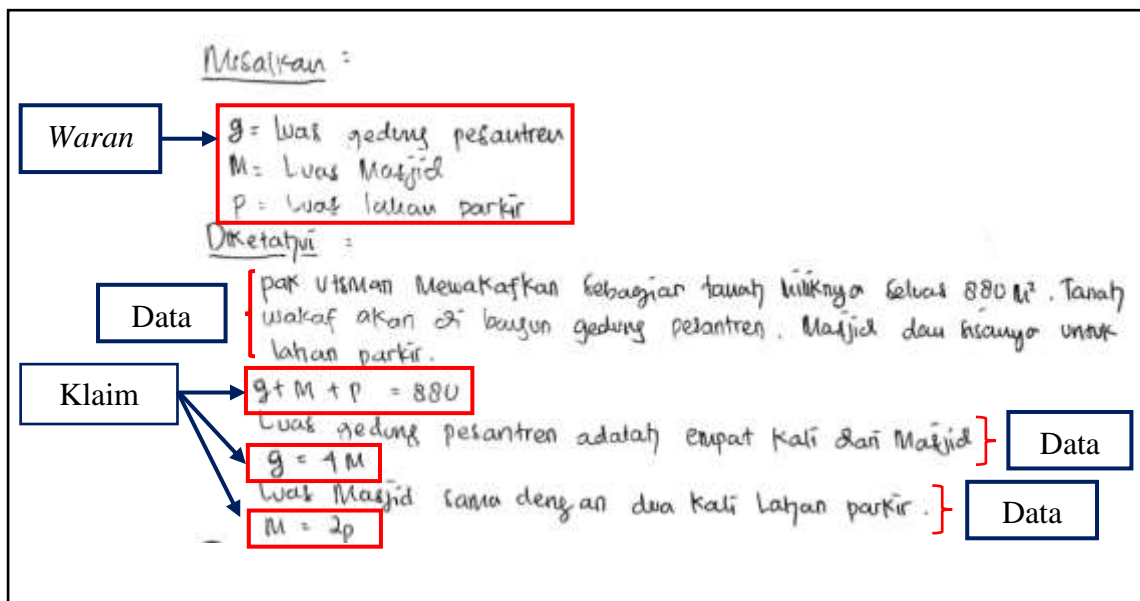 Misalkan :
Waran
g = Luas gedung pesantren
M = Luas Masjid
P = Luas lahan parkir
Diketahui :
Data
pak Utsman Mewakafkan Sebagian tanah Miliknya Seluas 880 M². Tanah
wakaf akan di bangun gedung pesantren. Masjid dan sisanya untuk
lahan parkir.
Klaim
g + M + P = 880
Luas gedung pesantren adalah empat kali dari Masjid
Data
g = 4M
Luas Masjid sama dengan dua kali Lahan parkir.
Data
M = 2p